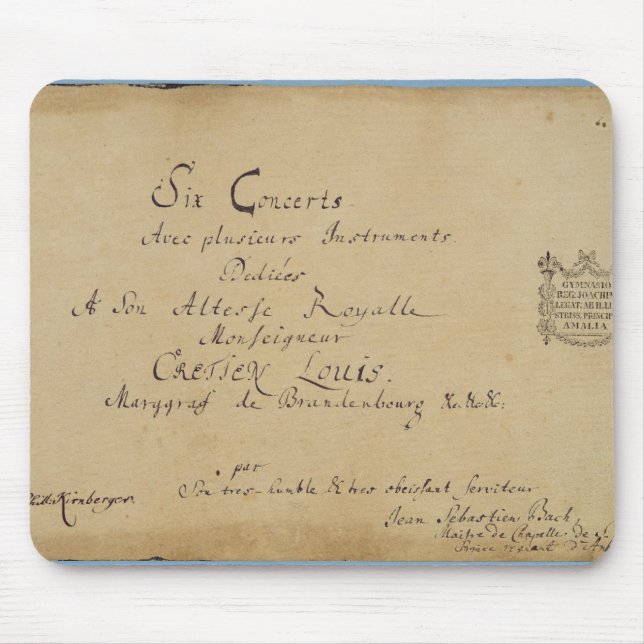 Six Concerts
Avec plusieurs Instruments.
Dediées
A Son Altesse Royalle
Monseigneur
CRETIEN Louis.
Marggraf de Brandenbourg &c &c &c:
par
Son tres-humble & tres obeissant serviteur
Jean Sebastien Bach,
Maitre de Chapelle de
Prince regnant d'An
Kirnberger.
GYMNASIO
REG. JOACHI
LEGAT. AB ILL
STRISS. PRINCIP
AMALIA